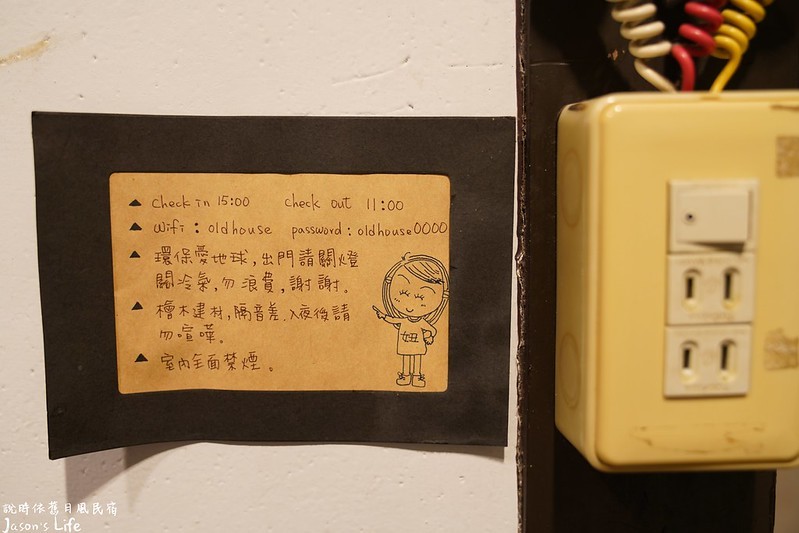 ▲ check in 15:00 check out 11:00
▲ wifi : oldhouse password : oldhouse0000
▲ 環保愛地球,出門請關燈
關冷氣,勿浪費,謝謝。
▲ 檜木建材,隔音差,入夜後請
勿喧嘩。
▲ 室內全面禁煙。
說時依舊月風民宿
Jason's Life